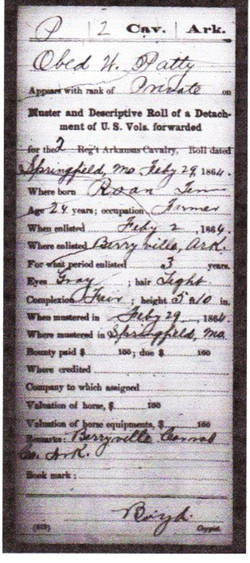 P | 2 | Cav. | Ark.
Obed W. Patty
Appears with rank of Private on
Muster and Descriptive Roll of a Detach-
ment of U. S. Vols. forwarded
for the 2 Reg't Arkansas Cavalry. Roll dated
Springfield, Mo Feby 29, 1864.
Where born Roan Tenn
Age 24 years; occupation Farmer
When enlisted Feby 2, 1864.
Where enlisted Berryville, Ark.
For what period enlisted 3 years.
Eyes Gray; hair Light
Complexion Fair; height 5 ft 10 in.
When mustered in Feby 29, 1864.
Where mustered in Springfield, Mo.
Bounty paid $ 100; due $ 100
Where credited
Company to which assigned
Valuation of horse, $ 100
Valuation of horse equipments, $ 100
Remarks: Berryville Carroll
Co. Ark.
Book mark:
Boyd
Copyist.